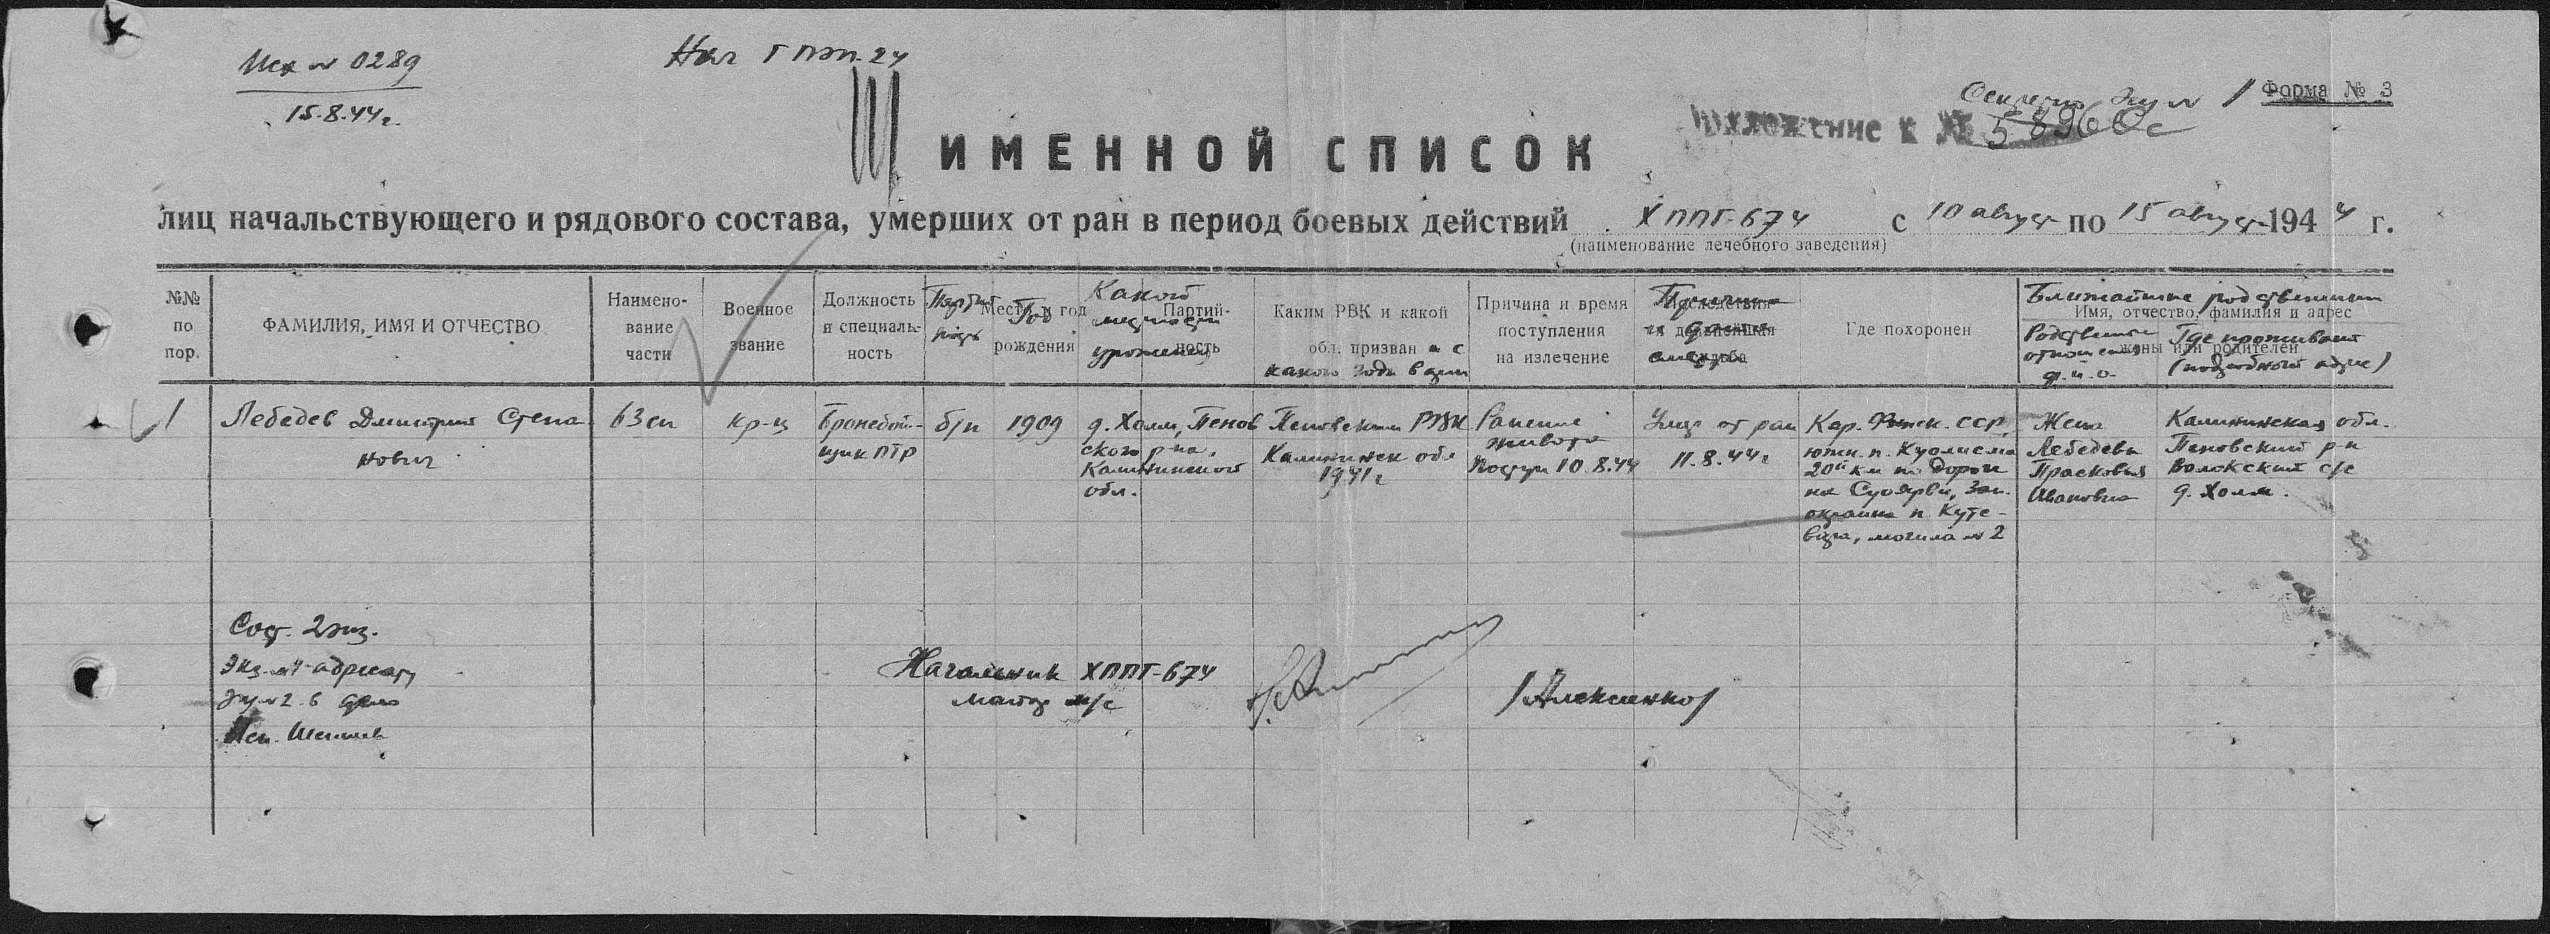 Исх № 0289
15.8.44 г.
Нач ГПЭП-24
Секретно Экз № 1
Форма № 3
Приложение к № 58966с
ИМЕННОЙ СПИСОК
лиц начальствующего и рядового состава, умерших от ран в период боевых действий ХППГ-674 с 10 август по 15 август 1944 г.
(наименование лечебного заведения)
№№ по пор.
ФАМИЛИЯ, ИМЯ И ОТЧЕСТВО
Наимено-
вание
части
Военное
звание
Должность
и специаль-
ность
Место и год
рождения
Год
Какой
местности
уроженец
Партий-
ность
Каким РВК и какой
обл. призван и с
какого года в арм
Причина и время
поступления
на излечение
Причина
и дата
смерти
Где похоронен
Ближайшие родственники
Имя, отчество, фамилия и адрес
жены или родителей
Родственные
отношения
ф.и.о.
Где проживают
(подробный адрес)
1
Лебедев Дмитрий Степа
нович
63 сп
кр-ц
Бронебой-
щик ПТР
б/п
1909
д. Холм, Пенов
ского р-на,
Калининской
обл.
Пеновским РВК
Калининск обл
1941 г
Ранение
живота
Поступ 10.8.44
Умер от ран
11.8.44 г
Кар. Финск. ССР,
южн. п. Куолисма
20й км по дороге
на Суоярви, Зап.
окраина п. Куте-
вара, могила № 2
Жена
Лебедева
Прасковья
Ивановна
Калининская обл.
Пеновский р-н
Волокский с/с
д. Холм.
Сост. 2 экз.
Экз. № 1 адресату
Экз № 2 в дело
Исп.
Начальник ХППГ-674
майор м/с
/Алексеенко/